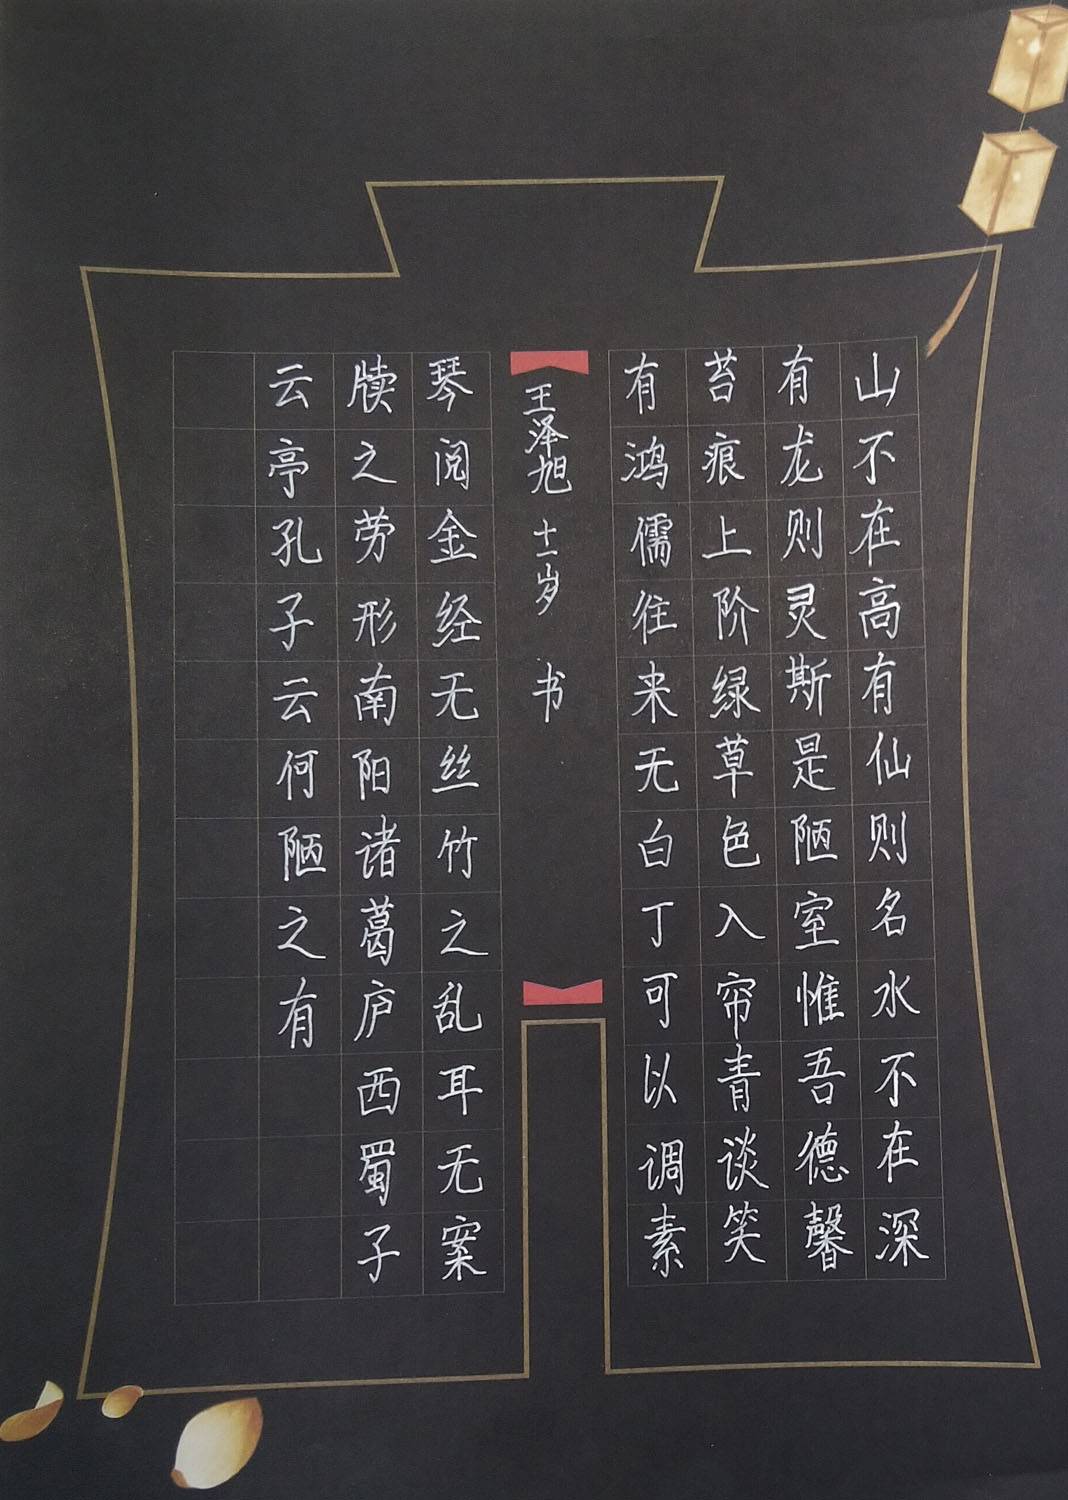 山不在高有仙则名水不在深
有龙则灵斯是陋室惟吾德馨
苔痕上阶绿草色入帘青谈笑
有鸿儒往来无白丁可以调素
王泽旭 十一岁 书
琴阅金经无丝竹之乱耳无案
牍之劳形南阳诸葛庐西蜀子
云亭孔子云何陋之有